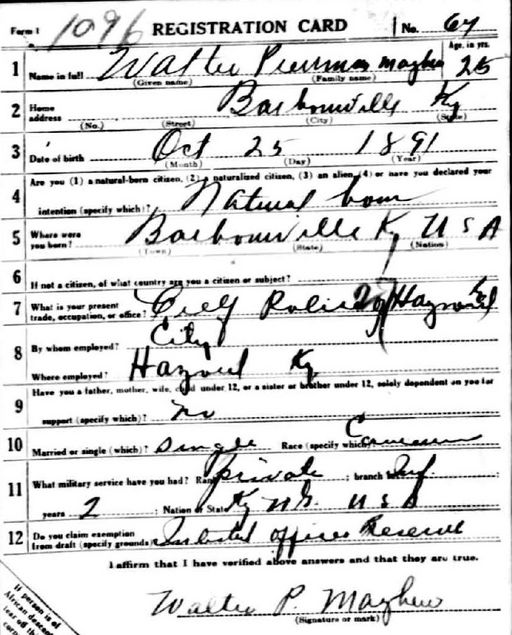 Form 1 1096 REGISTRATION CARD No. 64
1 Name in full Walter Mayhew Age, in yrs. 25
(Given name) (Family name)
2 Home address Barbourville Ky
(No.) (Street) (City) (State)
3 Date of birth Oct 25 1891
(Month) (Day) (Year)
Are you (1) a natural-born citizen, (2) a naturalized citizen, (3) an alien, (4) or have you declared your
4 intention (specify which)? Natural born
5 Where were you born? Barbourville Ky U S A
(Town) (State) (Nation)
6 If not a citizen, of what country are you a citizen or subject?
7 What is your present trade, occupation, or office? Police
8 By whom employed? City
Where employed? Hazard Ky
Have you a father, mother, wife, child under 12, or a sister or brother under 12, solely dependent on you for
9 support (specify which)? no
10 Married or single (which)? Single Race (specify which)
11 What military service have you had? Rank private ; branch Inf. ;
years 2 ; Nation or State Ky N G U S A
12 Do you claim exemption from draft (specify grounds)? Reserve
I affirm that I have verified above answers and that they are true.
Walter P. Mayhew
(Signature or mark)
If person is of
African
tear off